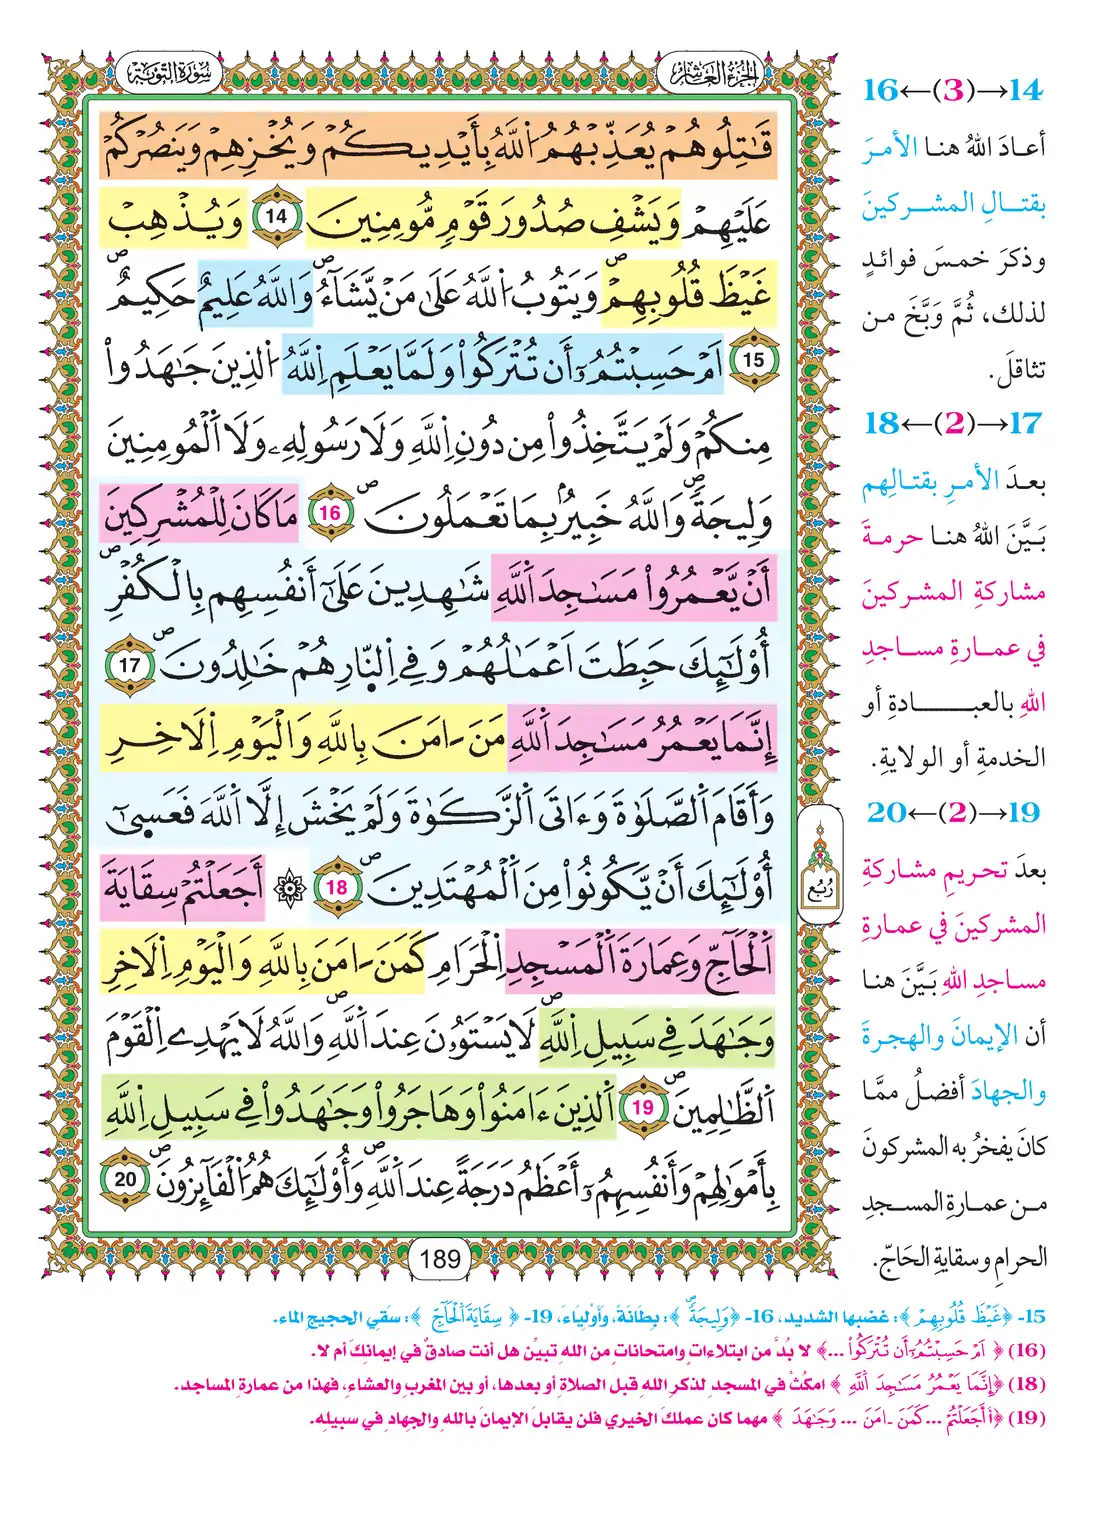 الجزء العاشر
سورة التوبة
قَٰتِلُوهُمْ يُعَذِّبْهُمُ اُ۬للَّهُ بِأَيْدِيكُمْ وَيُخْزِهِمْ وَيَنصُرْكُمْ
عَلَيْهِمْ وَيَشْفِ صُدُورَ قَوْمٖ مُّومِنِينَ 14 وَيُذْهِبْ
غَيْظَ قُلُوبِهِمْۖ وَيَتُوبُ اُ۬للَّهُ عَلَىٰ مَنْ يَّشَآءُۖ وَاللَّهُ عَلِيمٌ حَكِيمٌۖ
15 اَمْ حَسِبْتُمُۥٓ أَن تُتْرَكُواْ وَلَمَّا يَعْلَمِ اِ۬للَّهُ اُ۬لذِينَ جَٰهَدُواْ
مِنكُمْ وَلَمْ يَتَّخِذُواْ مِن دُونِ اِ۬للَّهِ وَلَا رَسُولِهِۦ وَلَا اَ۬لْمُومِنِينَ
وَلِيجَةٗۖ وَاللَّهُ خَبِيرُۢ بِمَا تَعْمَلُونَۖ 16 مَا كَانَ لِلْمُشْرِكِينَ
أَنْ يَّعْمُرُواْ مَسَٰجِدَ اَ۬للَّهِ شَٰهِدِينَ عَلَىٰٓ أَنفُسِهِم بِالْكُفْرِۖ
أُوْلَٰٓئِكَ حَبِطَتَ اَعْمَٰلُهُمْ وَفِي اِ۬لنّ۪ارِ هُمْ خَٰلِدُونَۖ 17
إِنَّمَا يَعْمُرُ مَسَٰجِدَ اَ۬للَّهِ مَنَ اٰمَنَ بِاللَّهِ وَالْيَوْمِ اِ۬لَاخِرِ
وَأَقَامَ اَ۬لصَّلَوٰةَ وَءَاتَى اَ۬لزَّكَوٰةَ وَلَمْ يَخْشَ إِلَّا اَ۬للَّهَ فَعَس۪ىٰٓ
أُوْلَٰٓئِكَ أَنْ يَّكُونُواْ مِنَ اَ۬لْمُهْتَدِينَۖ 18 ۞ أَجَعَلْتُمْ سِقَايَةَ
اَ۬لْحَآجِّ وَعِمَارَةَ اَ۬لْمَسْجِدِ اِ۬لْحَرَامِ كَمَنَ اٰمَنَ بِاللَّهِ وَالْيَوْمِ اِ۬لَاخِرِ
وَجَٰهَدَ فِي سَبِيلِ اِ۬للَّهِۖ لَا يَسْتَوُۥنَ عِندَ اَ۬للَّهِۖ وَاللَّهُ لَا يَهْدِے اِ۬لْقَوْمَ
اَ۬لظَّٰلِمِينَۖ 19 اَ۬لذِينَ ءَامَنُواْ وَهَاجَرُواْ وَجَٰهَدُواْ فِي سَبِيلِ اِ۬للَّهِ
بِأَمْوَٰلِهِمْ وَأَنفُسِهِمُۥٓ أَعْظَمُ دَرَجَةً عِندَ اَ۬للَّهِۖ وَأُوْلَٰٓئِكَ هُمُ اُ۬لْفَآئِزُونَۖ 20
ربع
189
14→(3)←16
أعادَ اللهُ هنا الأمرَ
بقتالِ المشركينَ
وذكرَ خمسَ فوائدٍ
لذلك، ثُمَّ وَبَّخَ من
تثاقلَ.
17→(2)←18
بعدَ الأمرِ بقتالِهم
بَيَّنَ اللهُ هنا حرمةَ
مشاركةِ المشركينَ
في عمارةِ مساجدِ
اللهِ بالعبادةِ أو
الخدمةِ أو الولايةِ.
19→(2)←20
بعدَ تحريمِ مشاركةِ
المشركينَ في عمارةِ
مساجدِ اللهِ بَيَّنَ هنا
أن الإيمانَ والهجرةَ
والجهادَ أفضلُ ممَّا
كانَ يفخرُ به المشركونَ
من عمارةِ المسجدِ
الحرامِ وسقايةِ الحَاجِّ.
15- ﴿غَيْظَ قُلُوبِهِمْ﴾: غضبها الشديد، 16- ﴿وَلِيجَةٗۖ﴾: بِطَانَةً، وَأَوْلِيَاءَ، 19- ﴿سِقَايَةَ اَ۬لْحَآجِّ﴾: سَقي الحجيج الماء.
(16) ﴿اَمْ حَسِبْتُمُۥٓ أَن تُتْرَكُواْ ...﴾ لا بُدَّ من ابتلاءاتٍ وامتحاناتٍ من اللهِ تبيِّن هل أنت صادقٌ في إيمانِكَ أم لا.
(18) ﴿إِنَّمَا يَعْمُرُ مَسَٰجِدَ اَ۬للَّهِ﴾ امكُثْ في المسجدِ لذكرِ اللهِ قبل الصلاة أو بعدها، أو بين المغربِ والعشاءِ، فهذا من عمارةِ المساجد.
(19) ﴿أَجَعَلْتُمْ ... كَمَنَ اٰمَنَ ... وَجَٰهَدَ﴾ مهما كان عملكَ الخيري فلن يقابلَ الإيمانَ باللهِ والجهادِ في سبيلِه.